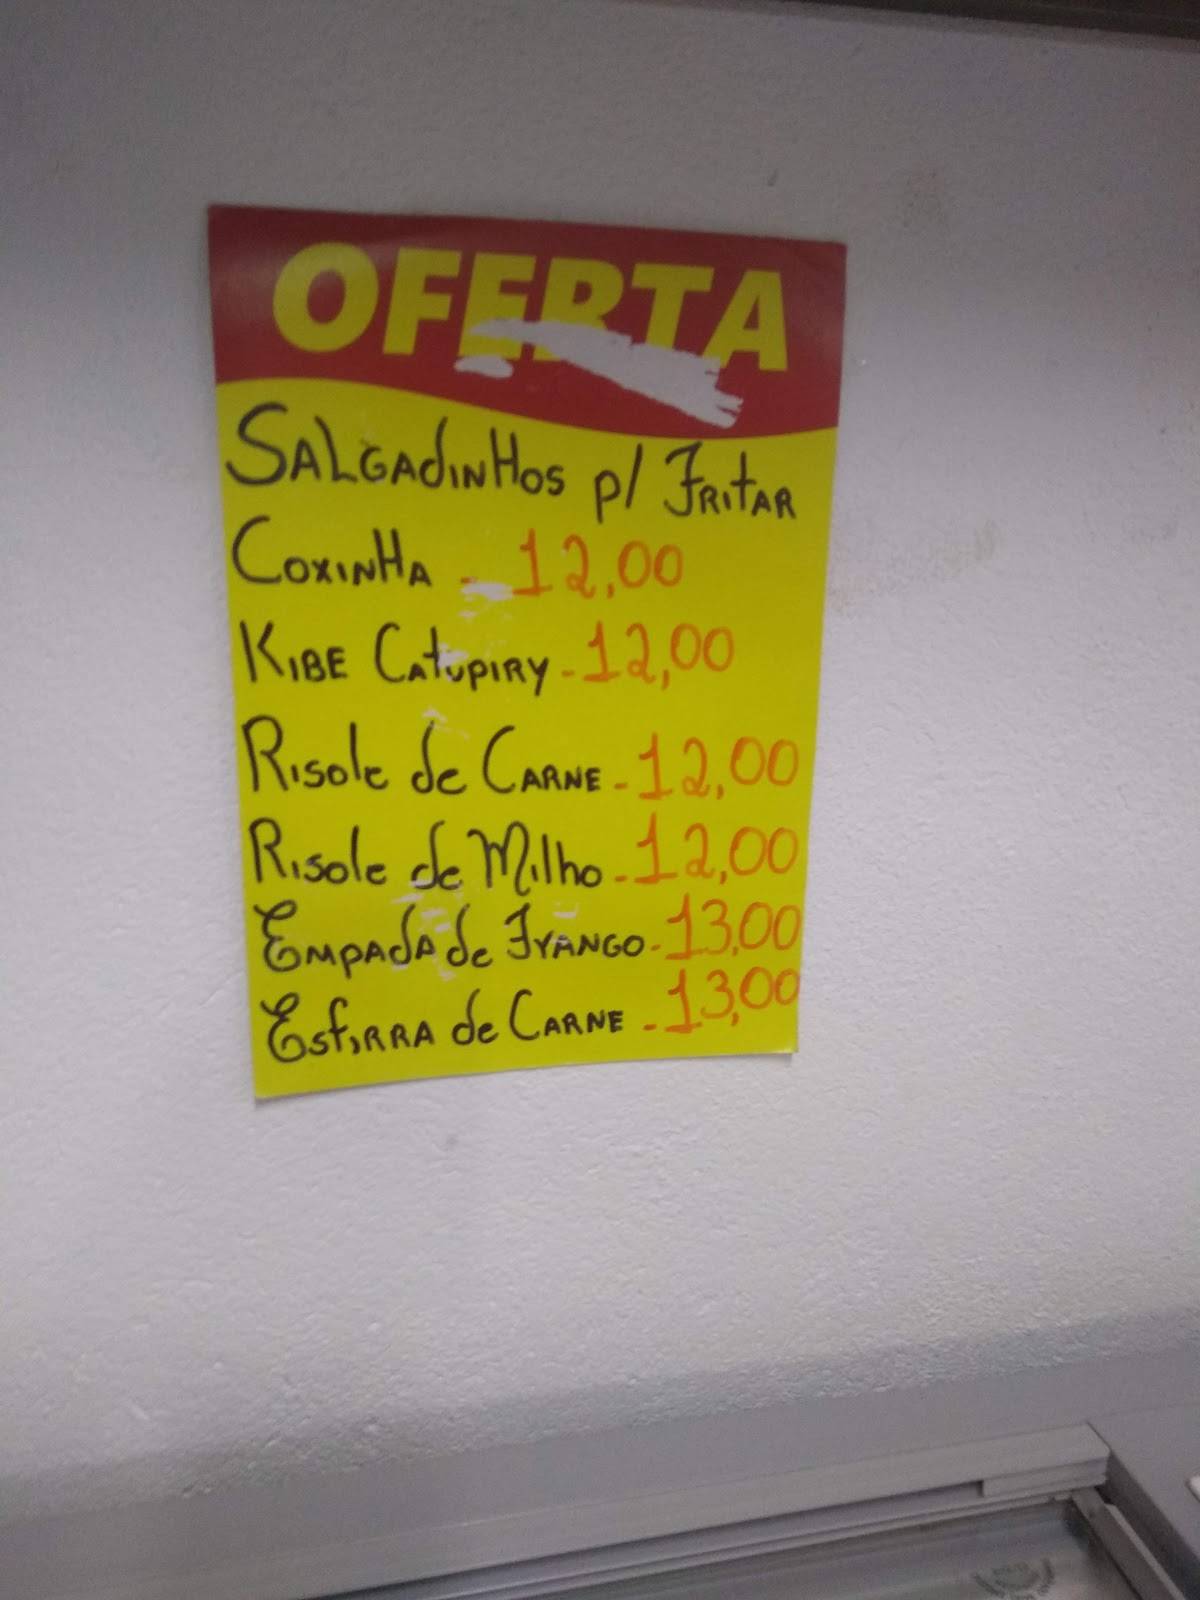 OFERTA
SALGADINHOS p/ FRITAR
COXINHA - 12,00
KIBE CATUPIRY - 12,00
Risole de CARNE - 12,00
Risole de Milho - 12,00
EMPADA de FRANGO - 13,00
ESFIRRA de CARNE - 13,00